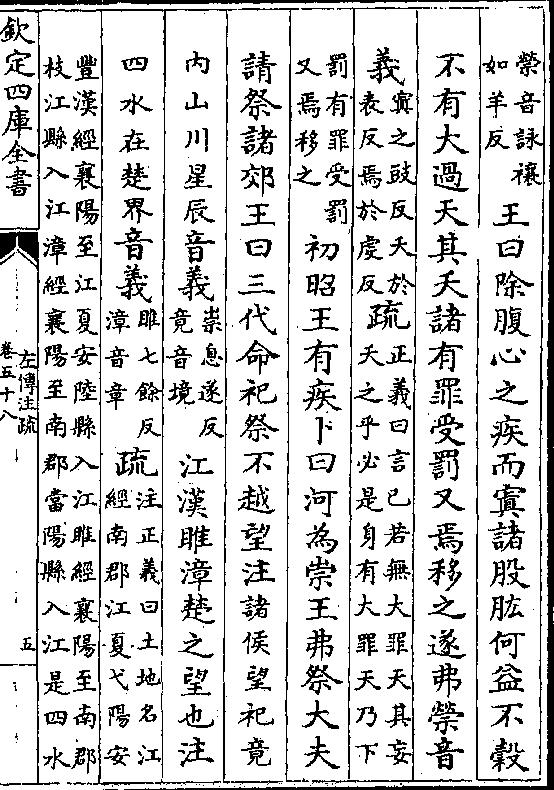 禜音詠禳
如羊反
王曰除腹心之疾而寘諸股肱何益不榖
不有大過天其夭諸有罪受罰又焉移之遂弗禜音
義
寘之豉反夭於
表反焉於虔反
疏
正義曰言已若無大罪天其妄
夭之乎必是身有大罪天乃下
罰有罪受罰
又焉移之
初昭王有疾卜曰河為祟王弗祭大夫
請祭諸郊王曰三代命祀祭不越望注諸侯望祀竟
内山川星辰音義
祟息遂反
竟音境
江漢睢漳楚之望也注
四水在楚界音義
睢七餘反
漳音章
疏
注正義曰土地名江
經南郡江夏弋陽安
豐漢經襄陽至江夏安陸縣入江睢經襄陽至南郡
枝江縣入江漳經襄陽至南郡當陽縣入江是四水
欽定四庫全書
左傳注疏
卷五十八
五